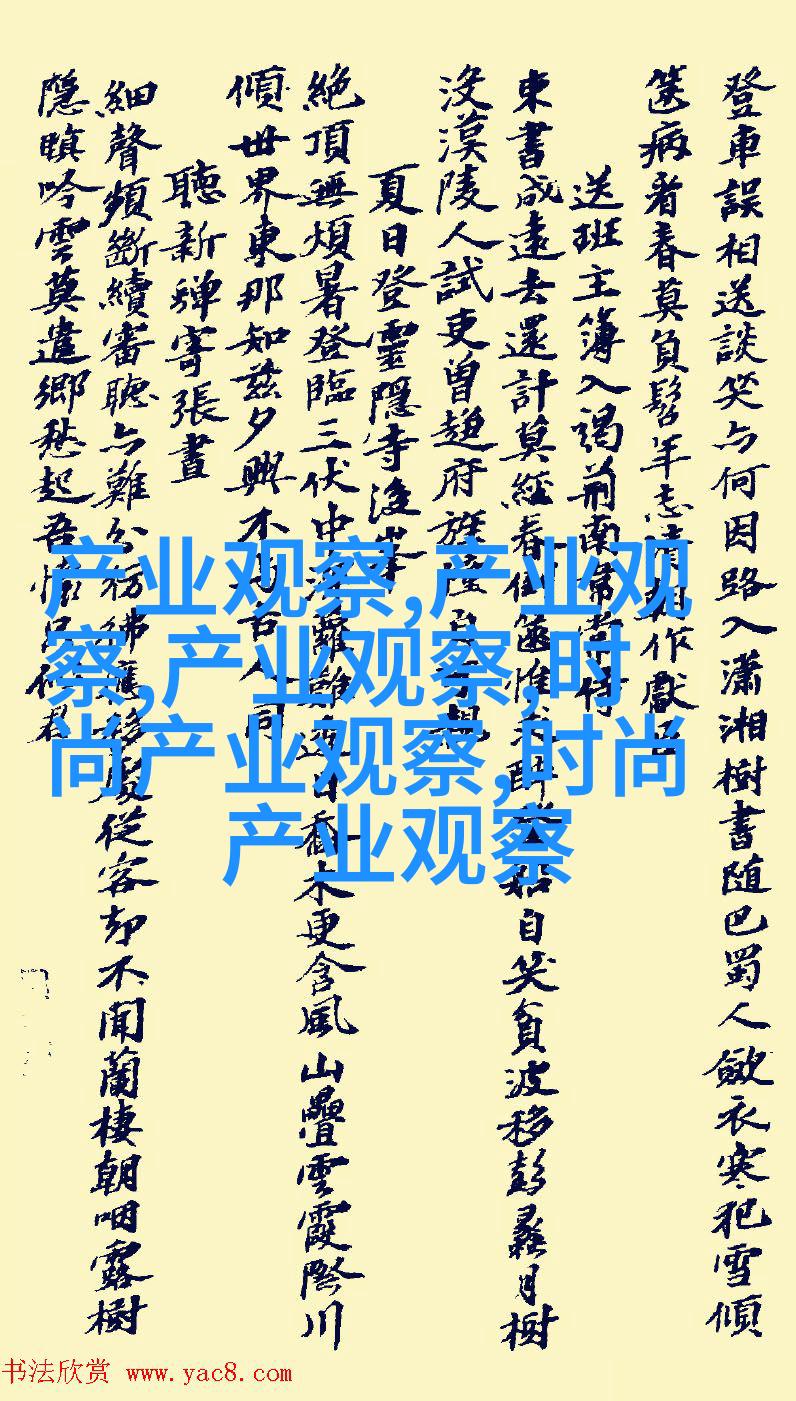 登車誤相送談笑亦何因路入瀟湘樹書随巴蜀人斂衣寒犯雪傾
篋病看春莫負髫年志清
作獻
送班主簿入謁荊南
東書成遠去還計莫經春
惟
自笑貧波移彭蠡月樹
没漢陵人試吏曾趍府
夏日登靈隱寺後峯
絶頂無煩暑登臨三伏中
喬木更含風山疊雲霞際川
傾世界東那知兹夕興不
古人同
聽新蟬寄張晝
細聲頻斷續審聽亦難分
應移處從容却不聞蘭棲朝咽露樹
隱暝吟雲莫遣鄉愁起吾懷
产业观察,产业观
察,产业观察,时
尚产业观察,时尚
产业观察
书法欣赏 www.yac8.com